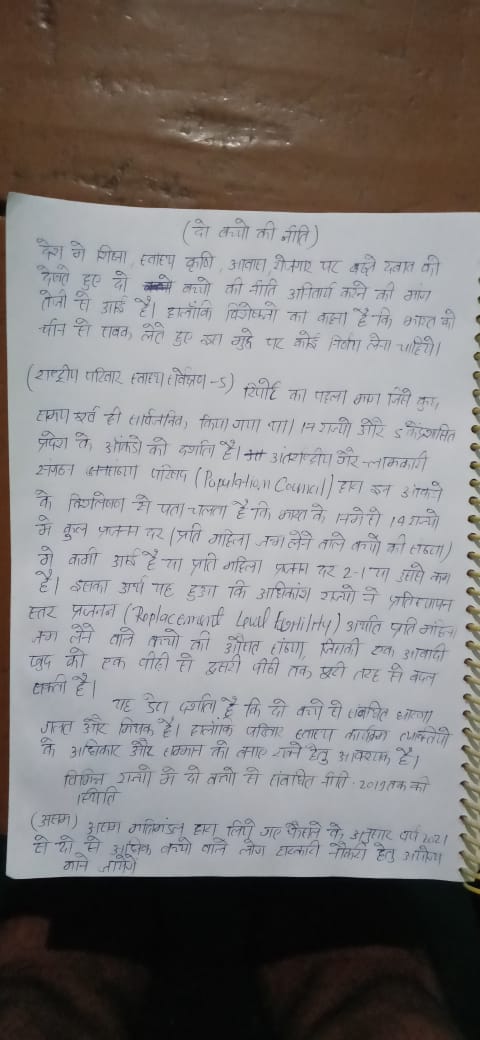 (दो बच्चो की नीति)
देश मे शिक्षा, स्वास्थ्य कृषि, आवास, रोजगार पर बढ़ते दबाव को
देखते हुए दो बच्चो की नीति अनिवार्य करने की मांग
तेजी से आई है। हालाँकि विशेषज्ञो का कहना है कि भारत को
चीन से सबक लेते हुए इस मुद्दे पर कोई निर्णय लेना चाहिये।
(राष्ट्रीय परिवार स्वास्थ्य सर्वेक्षण -5) रिपोर्ट का पहला भाग जिसे कुछ
समय पूर्व ही सार्वजनिक, किया गया था। 17 राज्यो और 5 केंद्रशासित
प्रदेश के आंकडो को दर्शाता है। अंतराष्ट्रीय गैर-लाभकारी
संगठन जनसंख्या परिषद (Population Council) द्वारा इन आंकडो
के विश्लेषण से पता चलता है कि भारत के 17 मे से 14 राज्यो
मे कुल प्रजनन दर (प्रति महिला जन्म लेने वाले बच्चो की संख्या)
मे कमी आई है या प्रति महिला प्रजनन दर 2-1 या उससे कम
है। इसका अर्थ यह हुआ कि अधिकांश राज्यो ने प्रतिस्थापन
स्तर प्रजनन (Replacement Level Fertility) अर्थात प्रति महिला
जन्म लेने वाले बच्चो की औसत संख्या, जिसकी एक आबादी
खुद को एक पीढी से दूसरी पीढी तक पूरी तरह से बदल
सकती है।
यह डेटा दर्शाता है कि दो बच्चो से संबंधित धारणा
गलत और मिथक है। हालाँकि परिवार स्वास्थ्य कार्यक्रम व्यक्तियो
के अधिकार और सम्मान को बनाए रखने हेतु आवश्यक है।
विभिन्न राज्यो मे दो बच्चो से संबंधित नीति - 2019 तक की
स्थिति
(असम) असम मंत्रिमंडल द्वारा लिये गए फैसले के अनुसार वर्ष 2021
से दो से अधिक बच्चो वाले लोग सरकारी नौकरी हेतु अयोग्य
माने जायेंगे